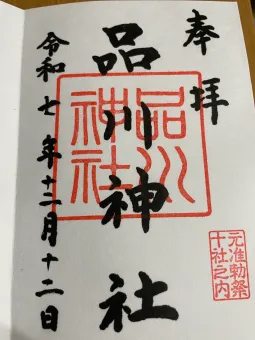 奉拝
品川神社
令和七年十二月十二日
品川
神社
元准勅祭
十社之内